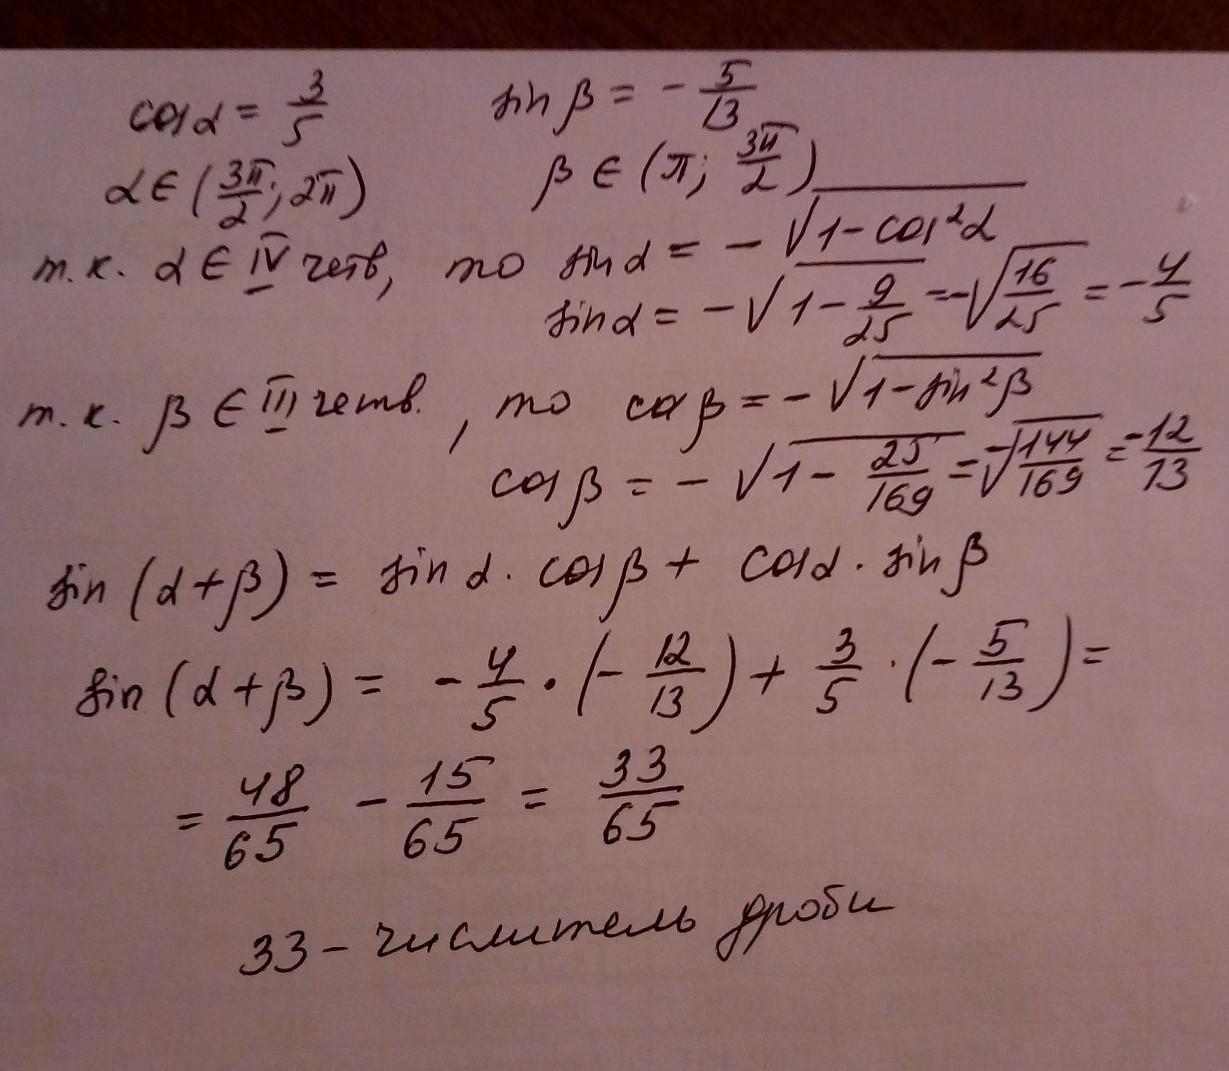 cos α = 3/5 sin β = - 5/13
α ∈ (3π/2; 2π) β ∈ (π; 3π/2)
т. к. α ∈ IV четв, то sin α = - √(1-cos²α)
sin α = - √(1 - 9/25) = -√(16/25) = - 4/5
т. к. β ∈ III четв., то cos β = - √(1-sin²β)
cos β = - √(1 - 25/169) = -√(144/169) = -12/13
sin (α+β) = sin α · cos β + cos α · sin β
sin (α+β) = - 4/5 · (- 12/13) + 3/5 · (- 5/13) =
= 48/65 - 15/65 = 33/65
33 - числитель дроби